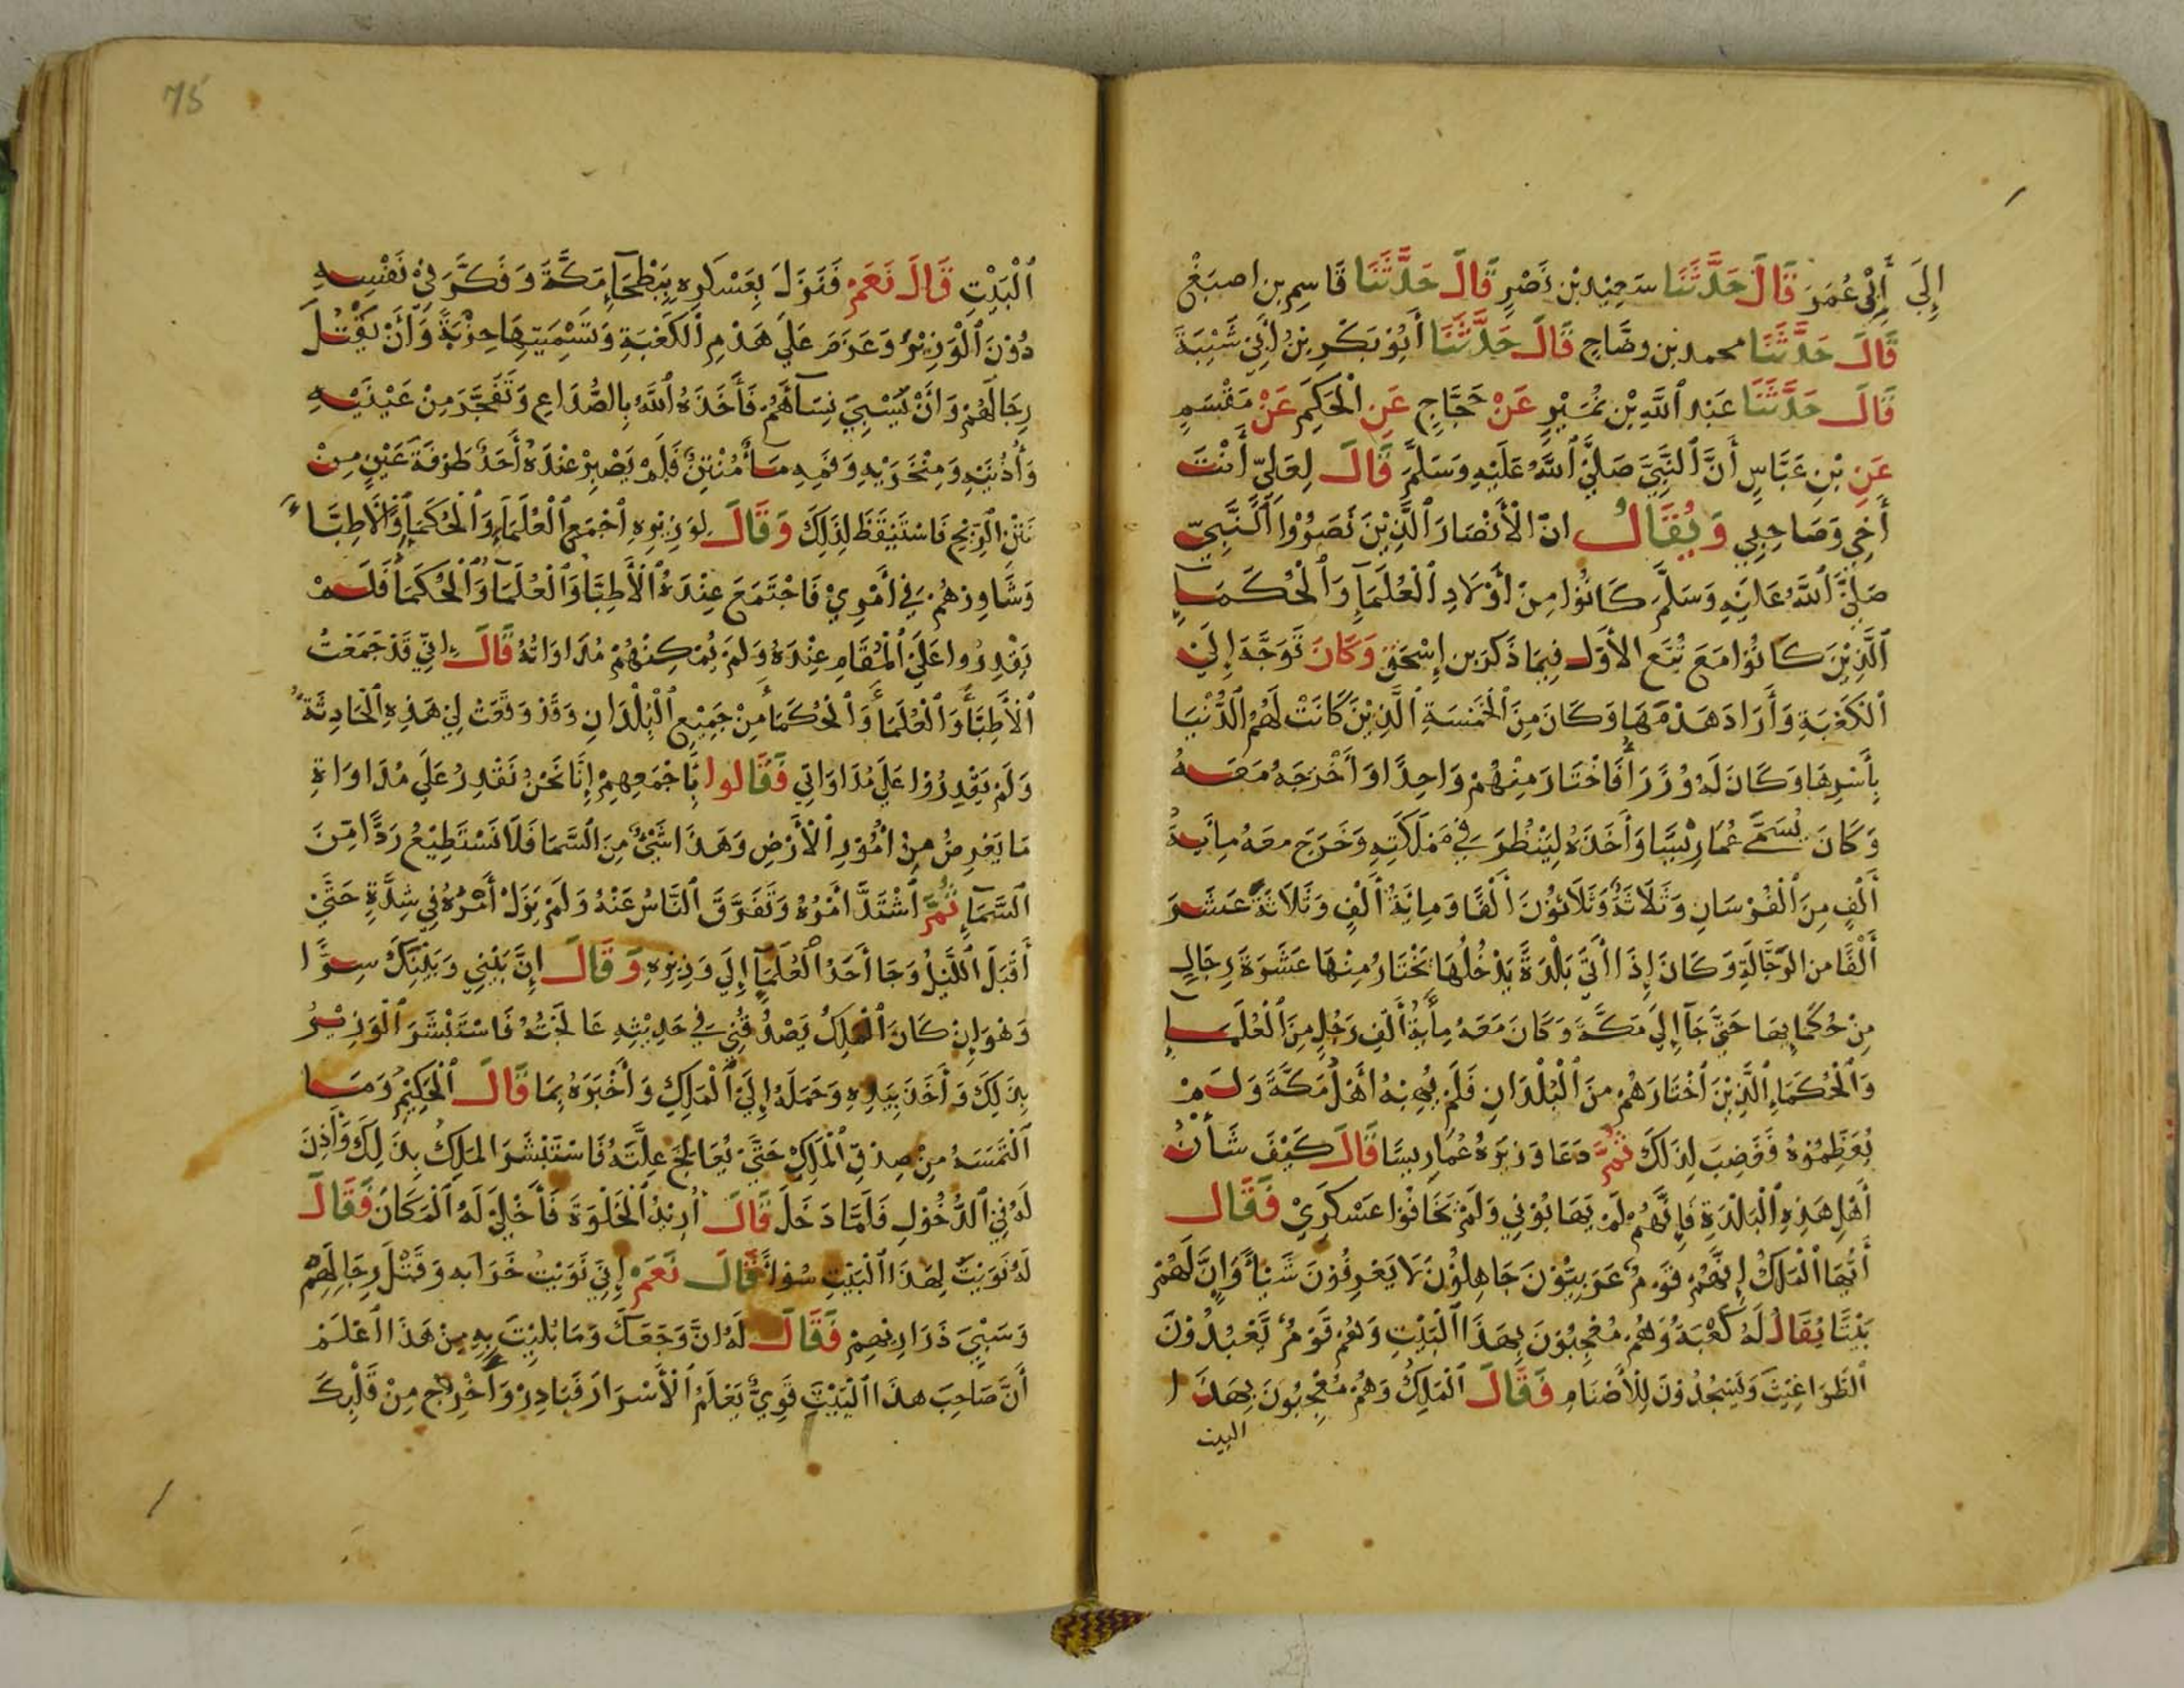 إِلَى أَبِي عُمَرَ قَالَ حَدَّثَنَا سَعِيْد بْن نَصْرٍ قَالَ حَدَّثَنَا قَاسِم بن اصبَغْ
قَالَ حَدَّثَنَا محمد بن وضَّاحٍ قَالَ حَدَّثَنَا أَبُوْ بَكْرِ بْنُ أَبِي شَيْبَةَ
قَالَ حَدَّثَنَا عَبْد اللَّهِ بْن نُمَيْرٍ عَنْ حَجَّاجٍ عَنِ الْحَكِمِ عَنْ مَقْسَمٍ
عَنِ بْنِ عَبَّاسٍ أَنَّ النَّبِيَّ صَلَّى اللَّهُ عَلَيْهِ وَسَلَّمَ قَالَ لِعَلِيّ أَنْتَ
أَخِي وَصَاحِبِي وَيُقَالُ انّ الْأَنْصَارَ الَّذِيْنَ نَصَرُوْا النَّبِيّ
صَلَّى اللَّهُ عَلَيْهِ وَسَلَّمَ كَانُوْا مِنْ أَوْلَادِ الْعُلَمَآءِ وَالْحُكَمَاءِ
الَّذِيْنَ كَانُوْا مَعَ تُبَّع الأَوَّل فِيمَا ذَكَرَ بن إِسْحَقَ وَكَانَ تَوَجَّهَ إِلَى
الْكَعْبَةِ وَأَرَادَ هَدْمَهَا وَكَانَ مِنَ الْخَمْسَةِ الَّذِيْنَ كَانَتْ لَهُمُ الدُّنْيَا
بِأَسْرِهَا وَكَانَ لَهُ وُزَرَاءُ فَاخْتَارَ مِنْهُمْ وَاحِدًا وَأَخْرَجَهُ مَعَهُ
وَكَانَ يُسَمَّى عُمَارِيْسَّا وَأَخَذَهُ لِيَنْظُرَ فِي مَمْلَكَتِهِ وَخَرَجَ معَهُ مِايَةُ
أَلْفٍ مِنَ الْفُرْسَانِ وَثَلَاثَةٌ وَثَلَاثُوْنَ أَلْفًا وَمِايَةُ أَلْفٍ وَثَلَاثَةَ عَشَرَ
أَلْفًا من الرَّجَّالَةِ وَكَانَ إِذَا أَتَى بَلْدَةً يَدْخُلُهَا يَخْتَارُ مِنْهَا عَشَرَةَ رِجَالٍ
مِنْ حُكَمَايِهَا حَتَّى جَآءَ إِلَى مَكَّةَ وَكَانَ مَعَهُ مِأَيَةُ أَلْفِ رَجُلٍ مِنَ الْعُلَمَاءِ
وَالْحُكَمَاءِ الَّذِيْنَ اخْتَارَهُمْ مِنَ الْبُلْدَانِ فَلَمْ يُهِبْهُ أَهْلُ مَكَّةَ وَلَمْ
يُعَظِّمُوْهُ فَغَضِبَ لِذَلَكَ ثُمَّ دَعَا وَزِيرَهُ عُمَارِيسَّا قَالَ كَيْفَ شَأْنُ
أَهْلِ هَذِهِ الْبَلْدَةِ فَإِنَّهُمْ لَمْ يَهَابُوْنِي وَلَمْ يَخَافُوْا عَسْكَرِيْ فَقَالَ
أَيُّهَا الْمَلِكُ إِنَّهُمْ قَوْمٌ عَرَبِيُّوْنَ جَاهِلُوْنَ لَا يَعْرِفُوْنَ شَيْأً وَإِنَّ لَهُمْ
بَيْتًا يُقَالُ لَهُ كَعْبَةُ وَهُمْ مُعْجِبُوْنَ بِهَذَا الْبَيْتِ وَهُمْ قَوْمٌ يَعْبُدُوْنَ
الطَّوَاغِيْتَ وَيَسْجُدُوْنَ لِلْأَصْنَامِ فَقَالَ الْمَلِكُ وَهُمْ مُعْجِبُونَ بِهَذَا
البيت
75
الْبَيْتِ قَالَ نَعَمْ فَنَزَلَ بِعَسْكَرِهِ بِبَطْحَآءِ مَكَّةَ وَفَكَّرَ فِيْ نَفْسِهِ
دُوْنَ الْوَزِيْرِ وَعَزَمَ عَلَى هَدْمِ الْكَعْبَةِ وَتَسْمِيَتِهَا خِزْبَةً وَأَنْ يَقْتُلَ
رِجَالَهُمْ وَأَنْ يَسْبِيَ نِسَآءَهُمْ فَأَخَذَهُ اللَّهُ بِالصُّدَاعِ وَتَفَجَّرَ مِنْ عَيْنَيْهِ
وَأُذُنَيْهِ وَمِنْخَرَيْهِ وَفَمِهِ مَآءٌ مُنْتِنٌ فَلَمْ يَصْبِرْ عِنْدَهُ أَحَدٌ طَرْفَةَ عَيْنٍ مِنْ
نَتْنِ الرِّيْحِ فَاسْتَيْقَظَ لِذَلِكَ وَقَالَ لِوَزِيْرِهِ اجْمَعِ الْعُلَمَآءَ وَالْحُكَمَآءَ وَالْأَطِبَّاءَ
وَشَاوِرْهُمْ فِي أَمْرِيْ فَاجْتَمَعَ عِنْدَهُ الْأَطِبَّاءُ وَالْعُلَمَآءُ وَالْحُكَمَاءُ فَلَمْ
يَقْدِرُوا عَلَى الْمُقَامِ عِنْدَهُ وَلَمْ يُمْكِنْهُمْ مُدَاوَاتُهُ قَالَ اِنِّي قَدْ جَمَعْتُ
الْأَطِبَّآءَ وَالْعُلَمَآءَ وَالْحُكَمَآءَ مِنْ جَمِيْعِ الْبُلْدَانِ وَقَدْ وَقَعَتْ لِيْ هَذِهِ الْحَادِثَةُ
وَلَمْ يَقْدِرُوْا عَلَى مُدَاوَاتِي فَقَالوا بِأَجْمَعِهِمْ إِنَّا نَحْنُ نَقْدِرُ عَلَى مُدَاوَاةِ
مَا يَعْرِضُ مِنْ أُمُوْرِ الْأَرْضِ وَهَذَا شَيْءٌ مِنَ السَّمَا فَلَا نَسْتَطِيْعُ رَدًّا مِّنَ
السَّمَآءِ ثُمَّ اشْتَدَّ أَمْرُهُ وَتَفَرَّقَ النَّاسُ عَنْهُ وَلَمْ يَزَلْ أَمْرُهُ فِي شِدَّةٍ حَتَّى
أَقْبَلَ اللَّيْلُ وَجَا أَحَدُ الْعُلَمَآءِ إِلَى وَزِيْرِهِ وَقَالَ إِنَّ بَيْنِي وَبَيْنَكَ سِرًّا
وَهُوَ إِنْ كَانَ الْمَلِكُ يَصْدُقُنِي فِي حَدِيْثِهِ عَالَجْتُهُ فَاسْتَبْشَرَ الْوَزِيْرُ
بِذَلِكَ وَأَخَذَ بِيَدِهِ وَحَمَلَهُ إِلَى الْمَلِكِ وَأَخْبَرَهُ بِمَا قَالَ الْحَكِيْمُ وَمَا
الْتَمَسَهُ مِنْ صِدْقِ الْمَلِكِ حَتَّى يُعَالِجَ عِلَّتَهُ فَاسْتَبْشَرَ الْمَلِكُ بِذَلِكَ وَأَذِنَ
لَهُ فِي الدُّخُوْلِ فَلَمَّا دَخَلَ قَالَ أُرِيْدُ الْخَلْوَةَ فَأَخْلَى لَهُ الْمَكَانَ فَقَالَ
لَهُ نَوَيْتَ لِهَذَا الْبَيْتِ سُوْأً قَالَ نَعَمْ إِنِّي نَوَيْتُ خَرَابه وَقَتْلَ رِجَالِهِمْ
وَسَبْيَ ذَرَارِيْهِمْ فَقَالَ لَهُ انَّ وَجَعَكَ وَمَا بُلِيْتَ بِهِ مِنْ هَذَا اعْلَمْ
أَنَّ صَاحِبَ هذَا الْبَيْتِ قَوِيٌّ يَعْلَمُ الْأَسْرَارَ فَبَادِرْ وَأَخْرِجْ مِنْ قَلْبِكَ